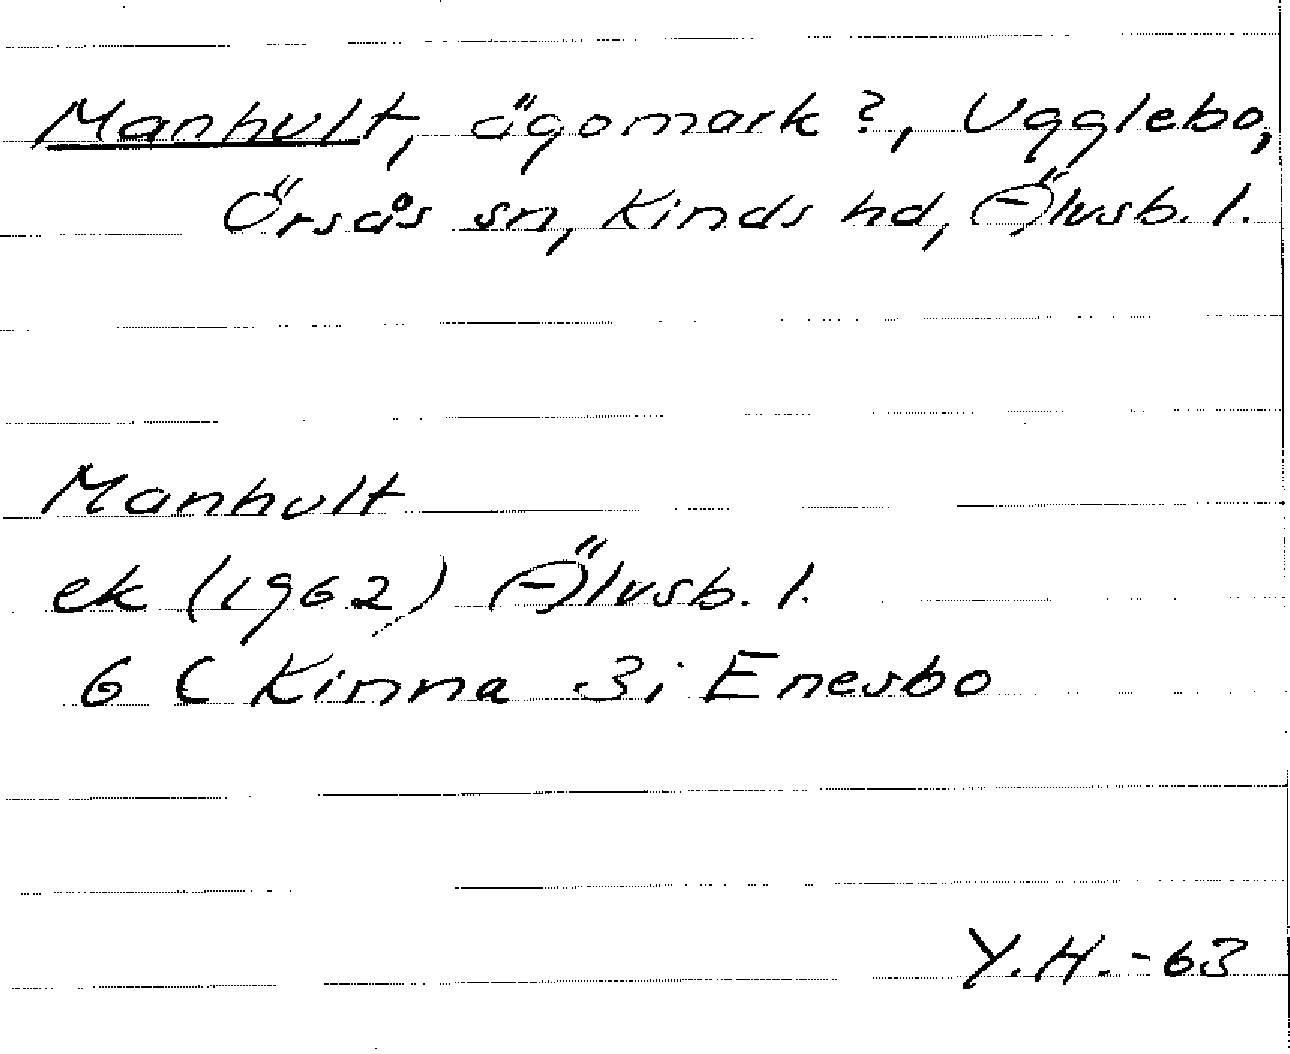 Manhult, ägomark?, Ugglebo,
Örsås sn, Kinds hd, Älvsb. l.
Manhult
ek (1962) Älvsb. l.
6 C Kinna 3i Enesbo
Y.H.-63